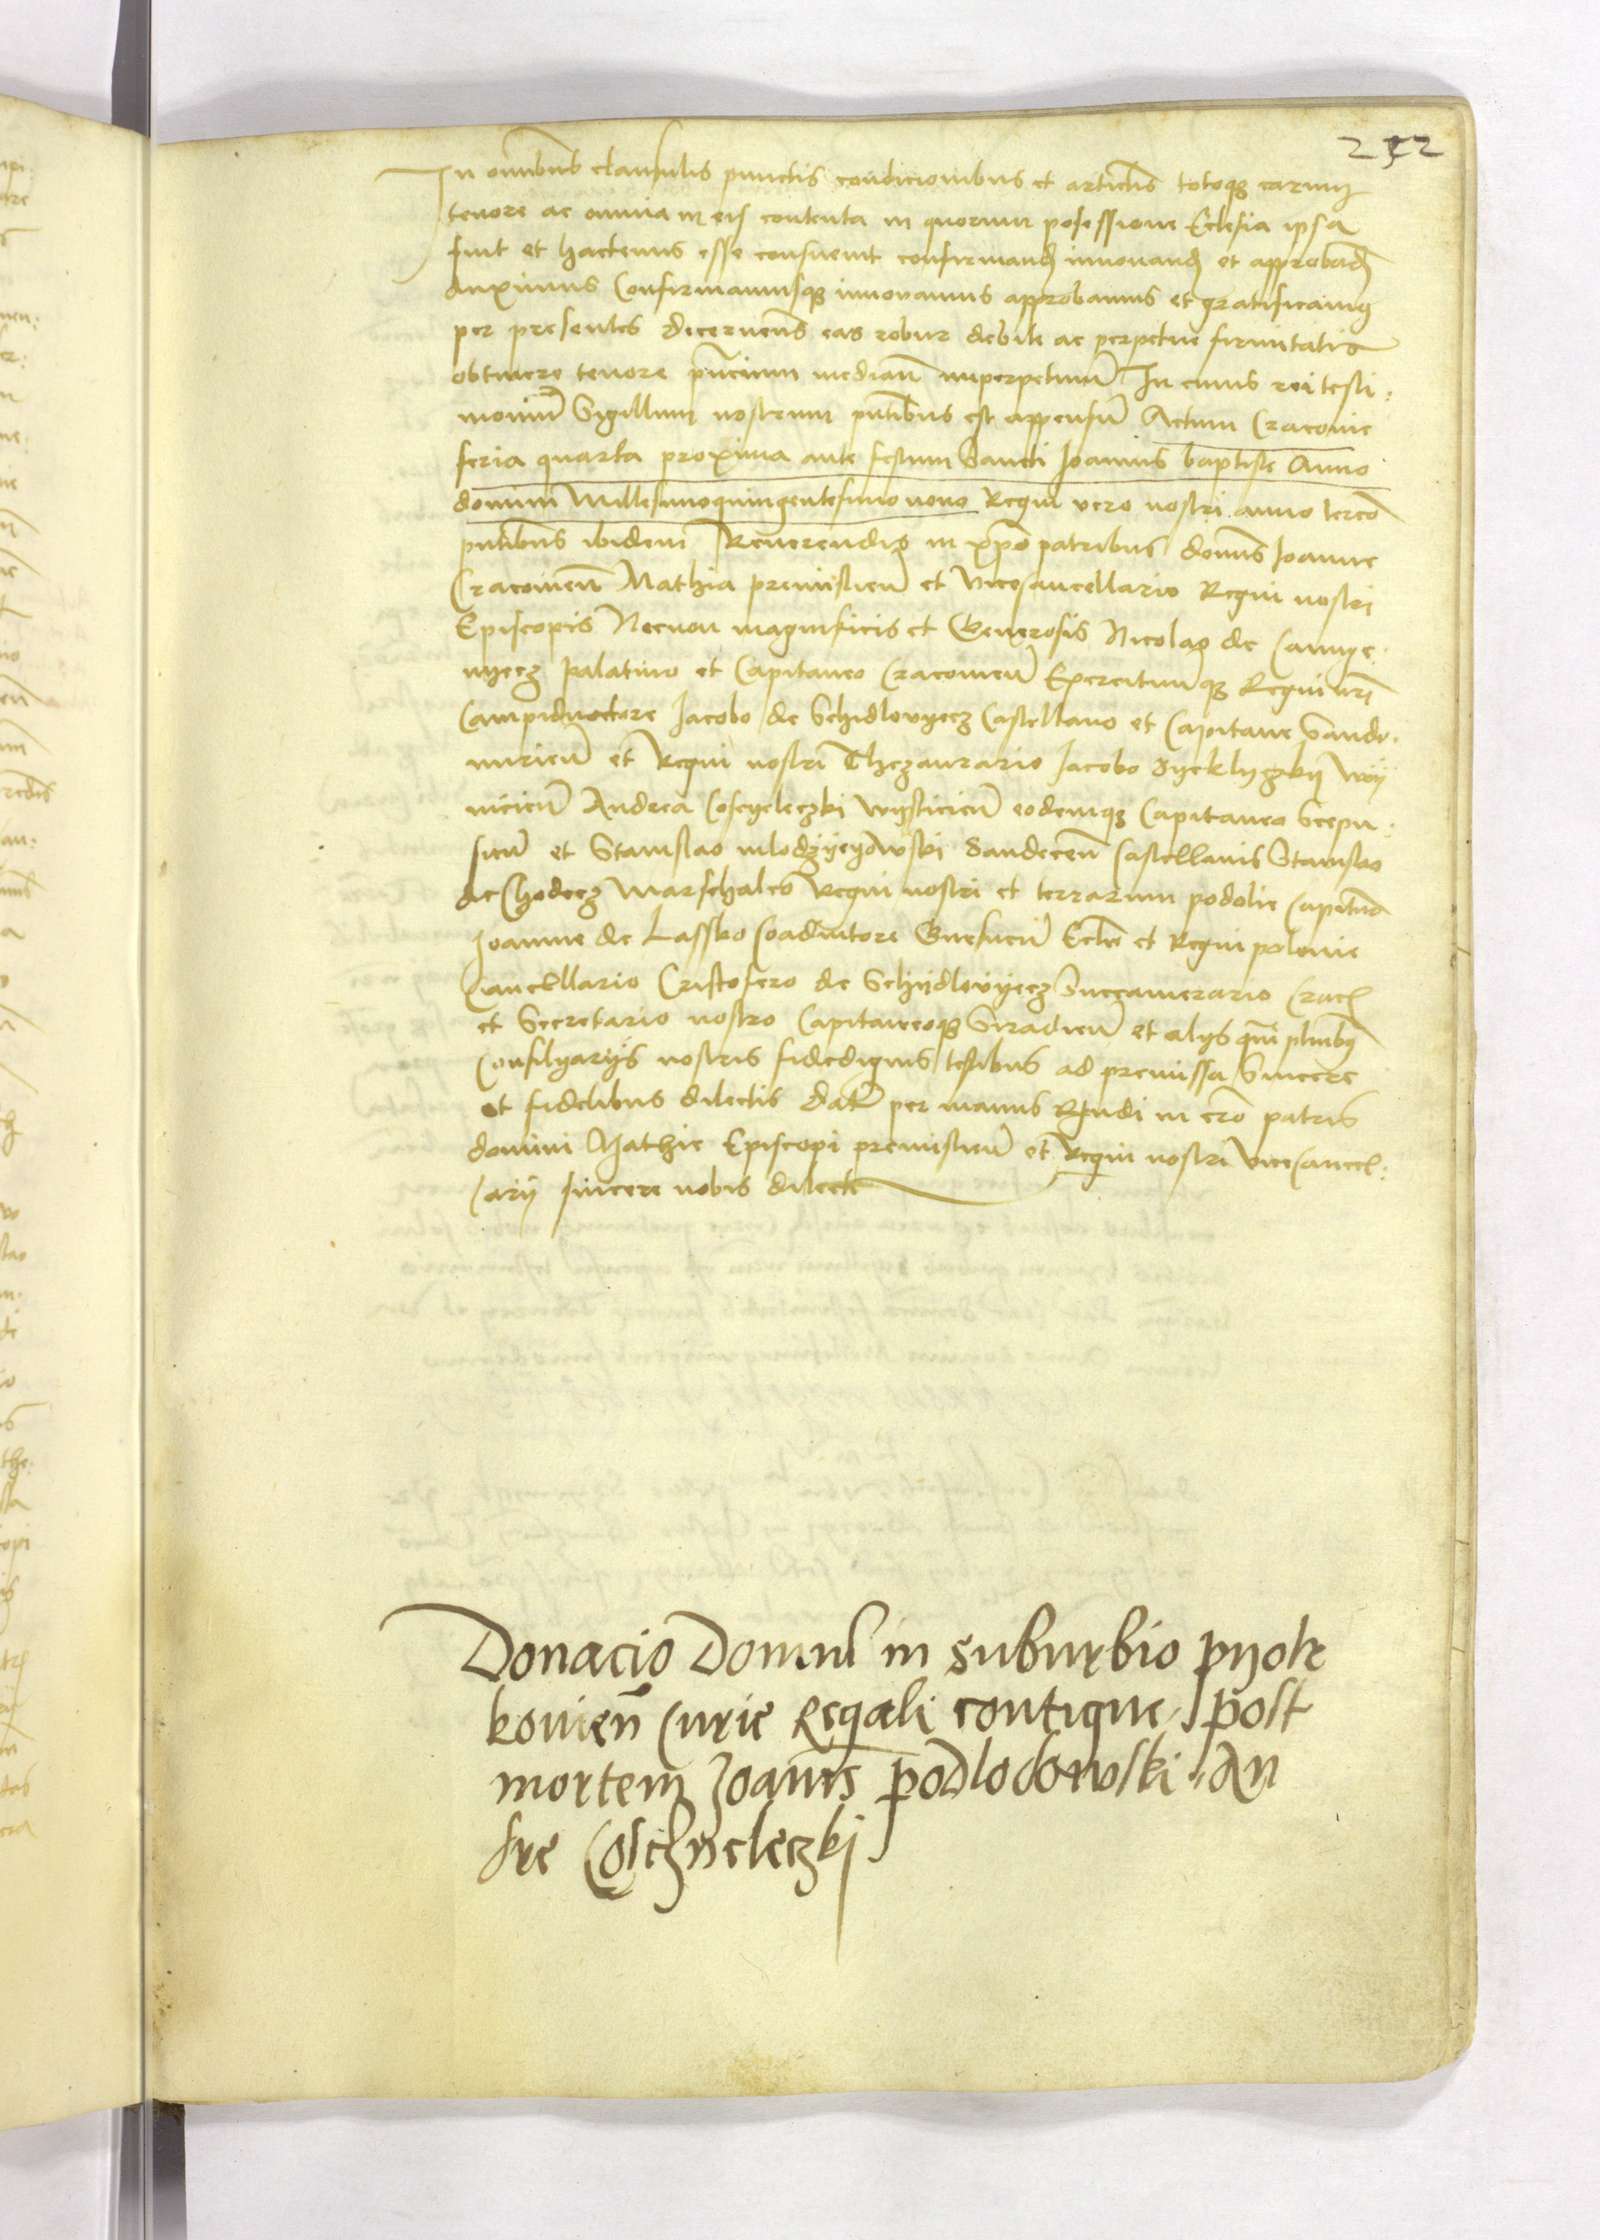 252
In omnibus clausulis punctis condicionibus et articlis totoqz earum
tenore ac omnia in eis contenta in quorum posessione Eclesia ipsa
fuit et hactenus esse consuevit confirmand innovand et approband
duximus Confirmamusqz innovamus approbamus et gratificamus
per presentes decernens eas robur debite ac perpetue firmitatis
obtinere tenore pncium median inperpetuum In cuius rei testi:
monium Sigillum nostrum pntibus est appensum Actum Cracovie
feria quarta proxima ante festum Sancti Joannis baptiste Anno
domini Millesimoquingentesimo nono Regni vero nostri anno terco
pntibus ibidem Reverendis in xpo patribus domnis Joanne
Cracovien Mathia premislien et Vicecancellario Regni nostri
Episcopis Necnon magnificis et Generosis Nicolao de Camye:
nyecz palatino et Capitaneo Cracovien Exercituumqz Regni nri
Campiductore Jacobo de Schidlovyecz Castellano et Capitane Sando:
mirien et Regni nostri Thezaurario Jacobo Syeklyczky Woy
nicien Andrea Coscyeleczki Wysliciens eodemqz Capitaneo Scepu:
sien et Stanislao mlodzyeyowski Sandecen Castellanis Stanislao
de Chodecz Marschalco Regni nostri et terrarum podolie Capitano
Joanne de Lassko Coadiutore Gnesnen Eclie et Regni polonie
Cancellario Cristofero de Schydlovyecz Succamerario Crac
et Secretario nostro Capitaneoqz Siradien et alys qm plribus
Consilyariis nostris fidedignis testibus ad premissa Sincere
et fidelibus dilectis Dat per manus Rndi in cro patris
domini Mathie Episcopi premislien et Regni nostri vicecancel:
larii sincere nobis dilecti
Donacio Domus in suburbio pyotr
kovien Curie Regali contigue post
mortem Joannis podlodowski An
dre Coschyeleczki